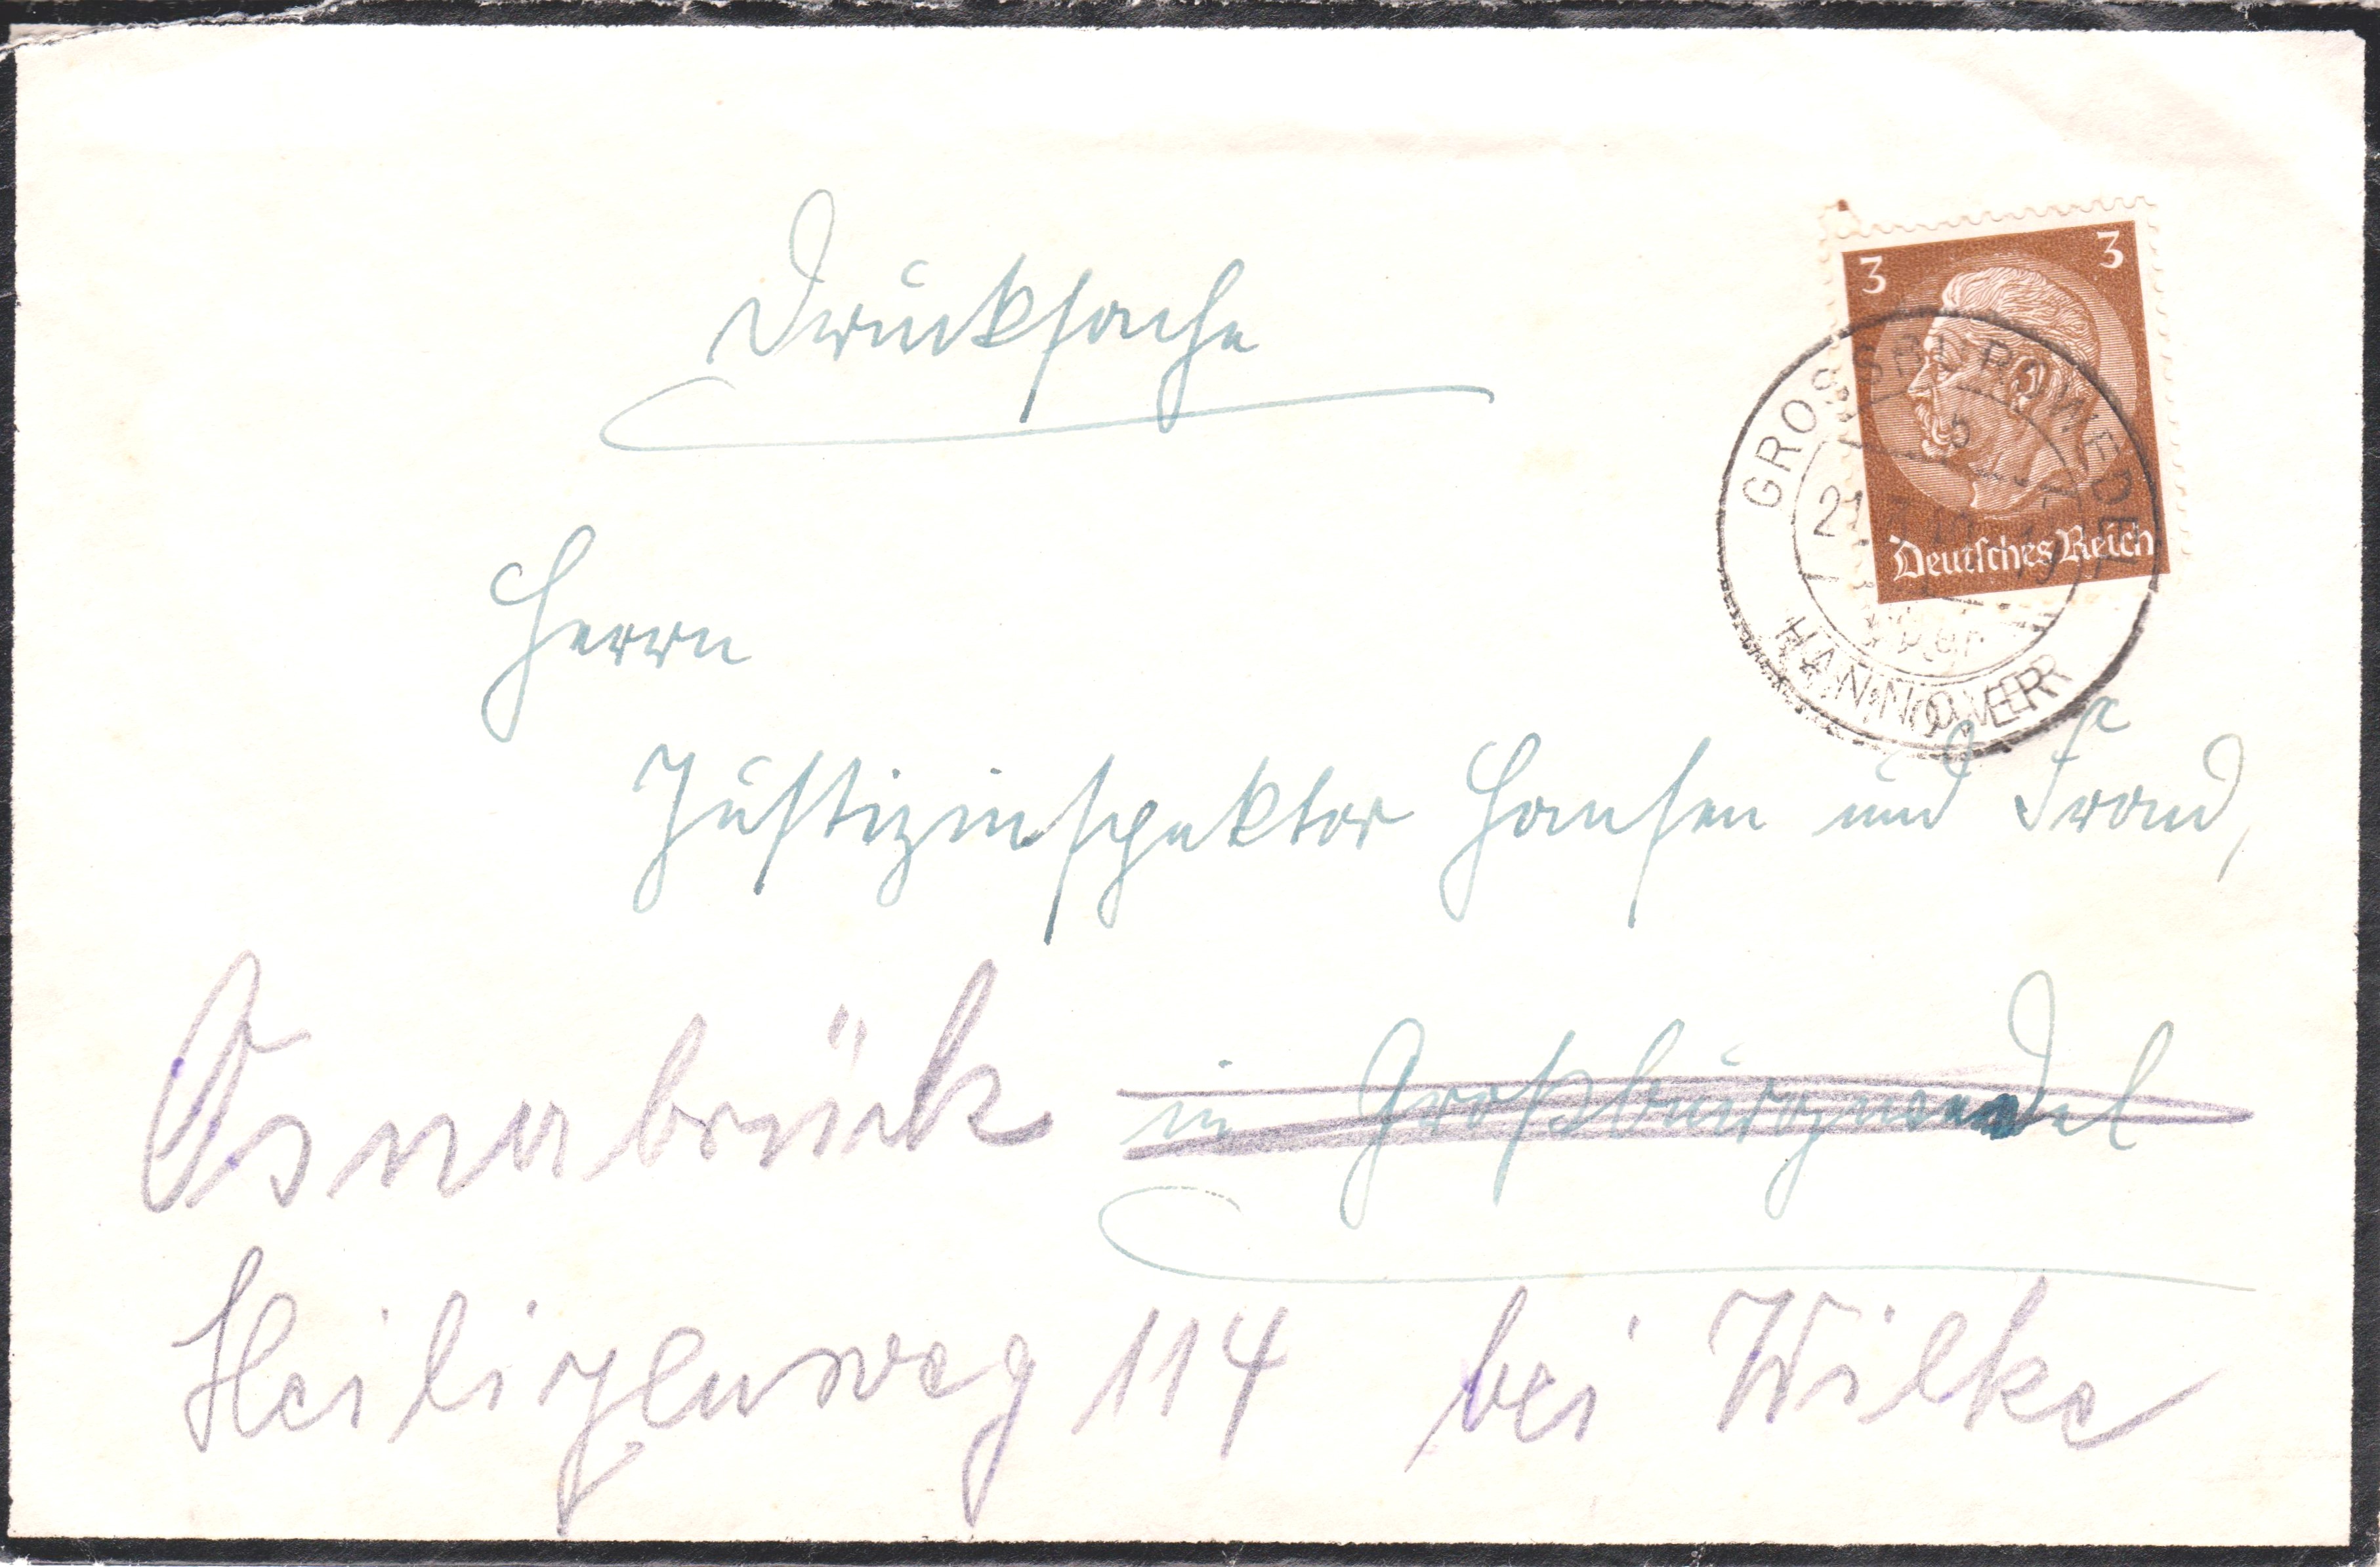 Drucksache
3 3
Deutsches Reich
GROSSBURGWEDEL
HANNOVER
Herrn
Justizinspektor Hansen und Fraud,
in Großburgwedel
Osnabrück
Heiligenweg 114 bei Wilke